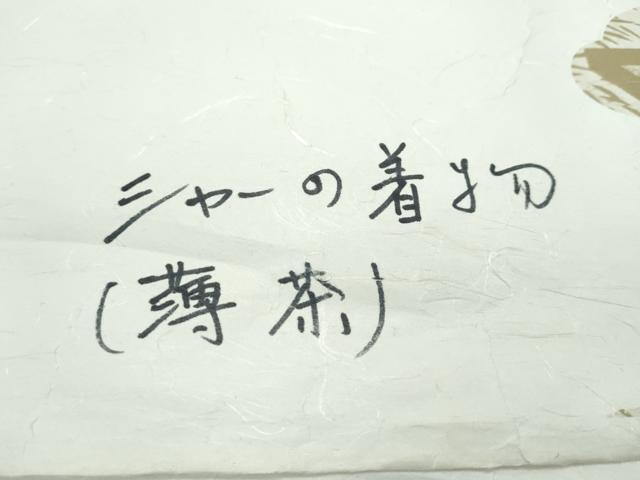 シャーの着物
(薄茶)